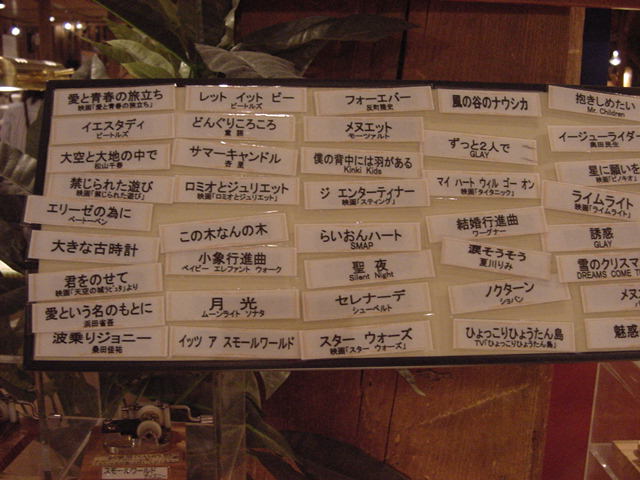 愛と青春の旅立ち
映画「愛と青春の旅立ち」
イエスタディ
ビートルズ
大空と大地の中で
松山千春
禁じられた遊び
映画「禁じられた遊び」
エリーゼの為に
ベートーベン
大きな古時計
君をのせて
映画「天空の城ラピュタ」より
愛という名のもとに
浜田省吾
波乗りジョニー
桑田佳祐
レット イット ビー
ビートルズ
どんぐりころころ
童謡
サマーキャンドル
杏里
ロミオとジュリエット
映画「ロミオとジュリエット」
この木なんの木
小象行進曲
ベイビー エレファント ウォーク
月光
ムーンライト ソナタ
イッツ ア スモールワールド
フォーエバー
反町隆史
メヌエット
モーツァルト
僕の背中には羽がある
Kinki Kids
ジ エンターティナー
映画「スティング」
らいおんハート
SMAP
聖夜
Silent Night
セレナーデ
シューベルト
スター ウォーズ
映画「スター ウォーズ」
風の谷のナウシカ
ずっと2人で
GLAY
マイ ハート ウィル ゴー オン
映画「タイタニック」
結婚行進曲
ワーグナー
涙そうそう
夏川りみ
ノクターン
ショパン
ひょっこりひょうたん島
TV「ひょっこりひょうたん島」
抱きしめたい
Mr. Children
イージューライダー
奥田民生
星に願いを
映画「ピノキオ」
ライムライト
映画「ライムライト」
誘惑
GLAY
雪のクリスマ
DREAMS COME T
メヌ
魅惑
スモールワールド